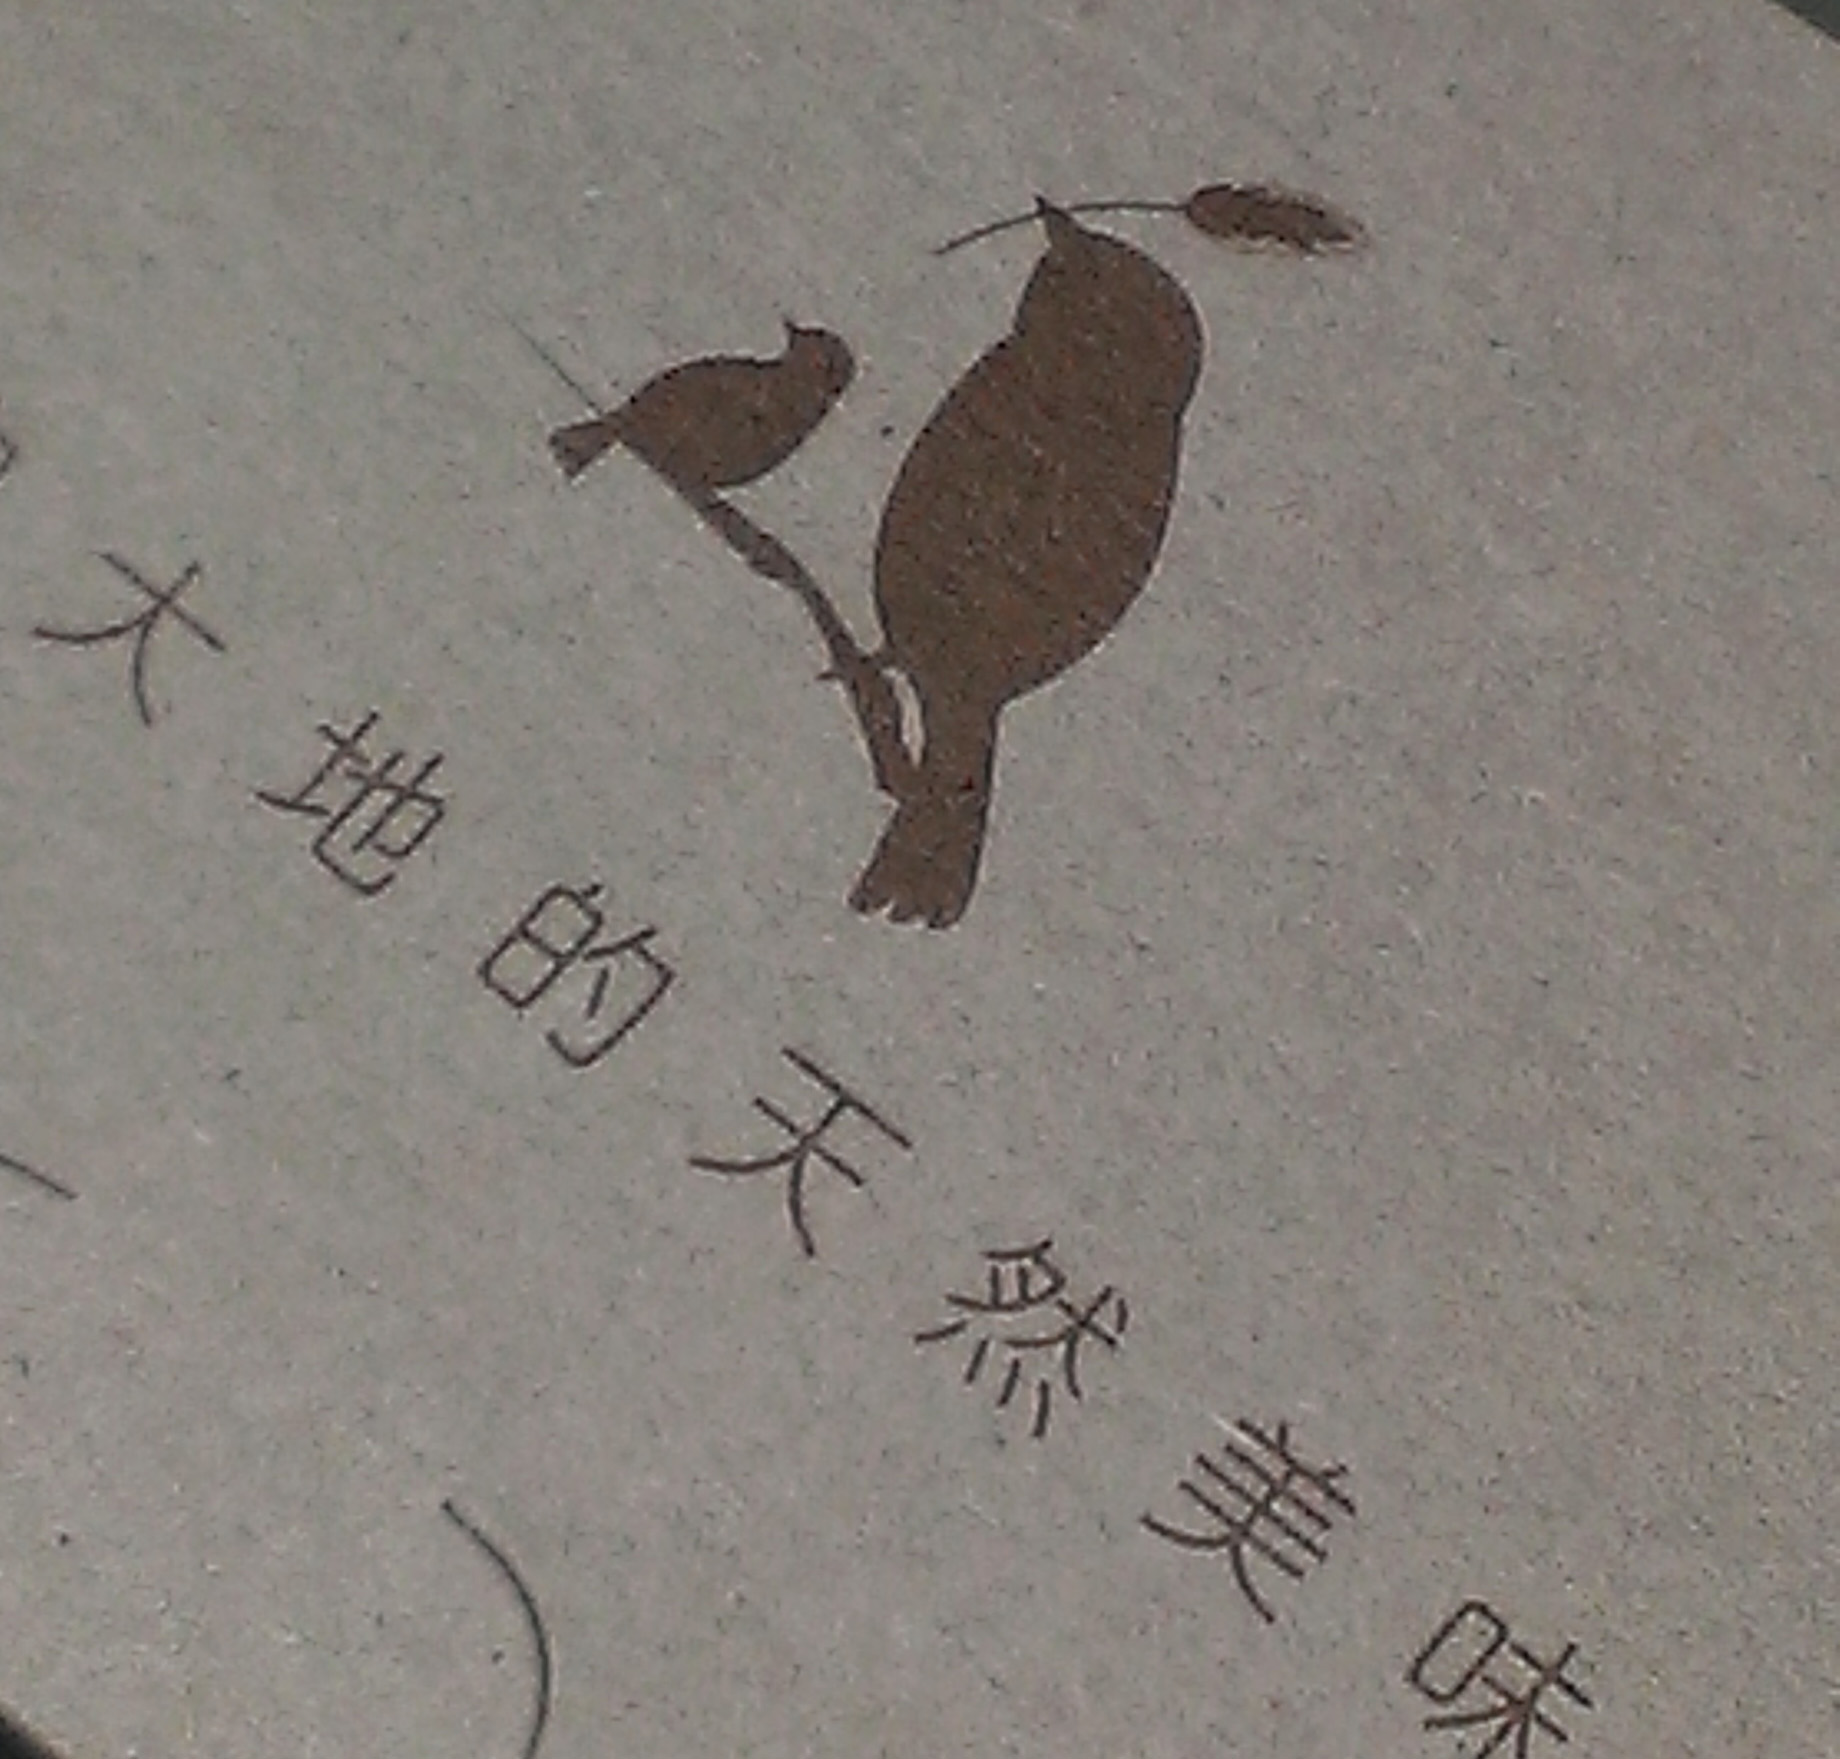 大地的天然美味